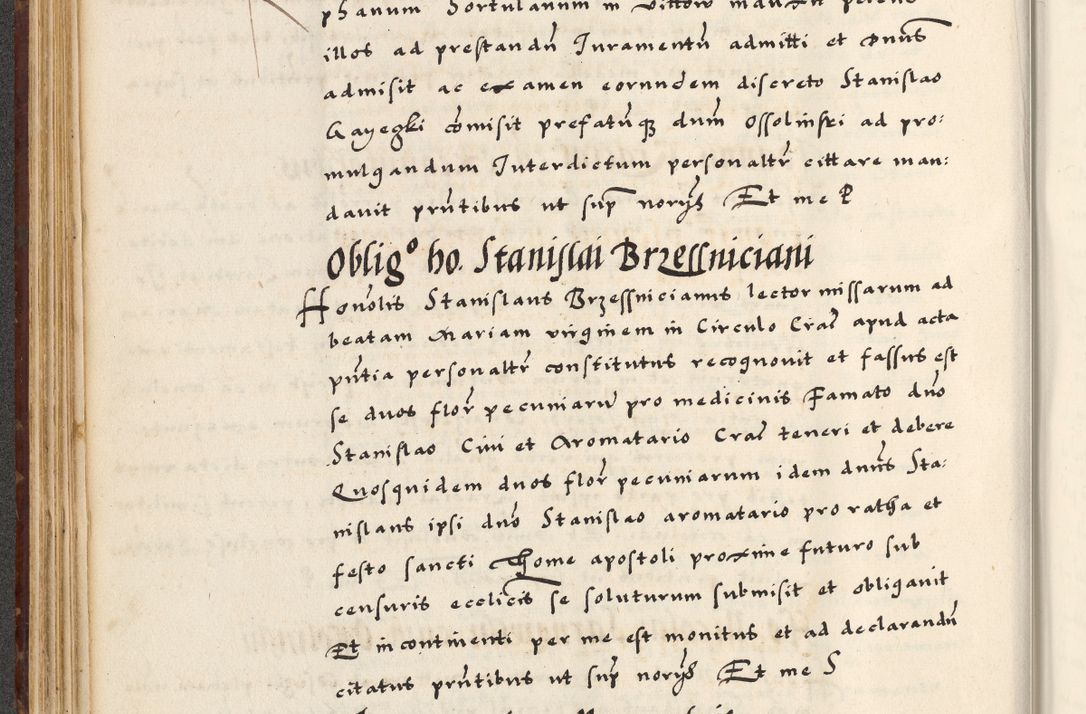 phanum Hortulanum in
illos ad prestandū Juramentū admitti et Dnūs
admisit ac examen eorundem discreto Stanislao
Gayegki cōmisit prefatūq3 dum̄ Ossolinski ad pro:
mulgandum Interdictum personaltr̄ cittare man:
davit pr̄ntibus ut sup̄ norijs Et me P
Oblig° ho. Stanislai Brzessniciani
Honōlis Stanislaus Brzessnicianus lector missarum ad
beatam Mariam virginem in Circulo Crac̄ apud acta
pn̄tia personaltr̄ constitutus recognovit et fassus est
se duos flor̄ pecuniarū pro medicinis Famato dnō
Stanislao Civi et Aromatario Crac̄ teneri et debere
Quosquidem duos flor̄ pecuniarum idem dnūs Sta:
nislaus ipsi dnō Stanislao aromatario pro ratha et
festo sancti Thome apostoli proxime futuro sub
censuris ecclīcis se soluturum submisit et obligavit
Et incontinenti per me est monitus et ad declarandū
citatus pr̄ntibus ut sup̄ norijs Et me S